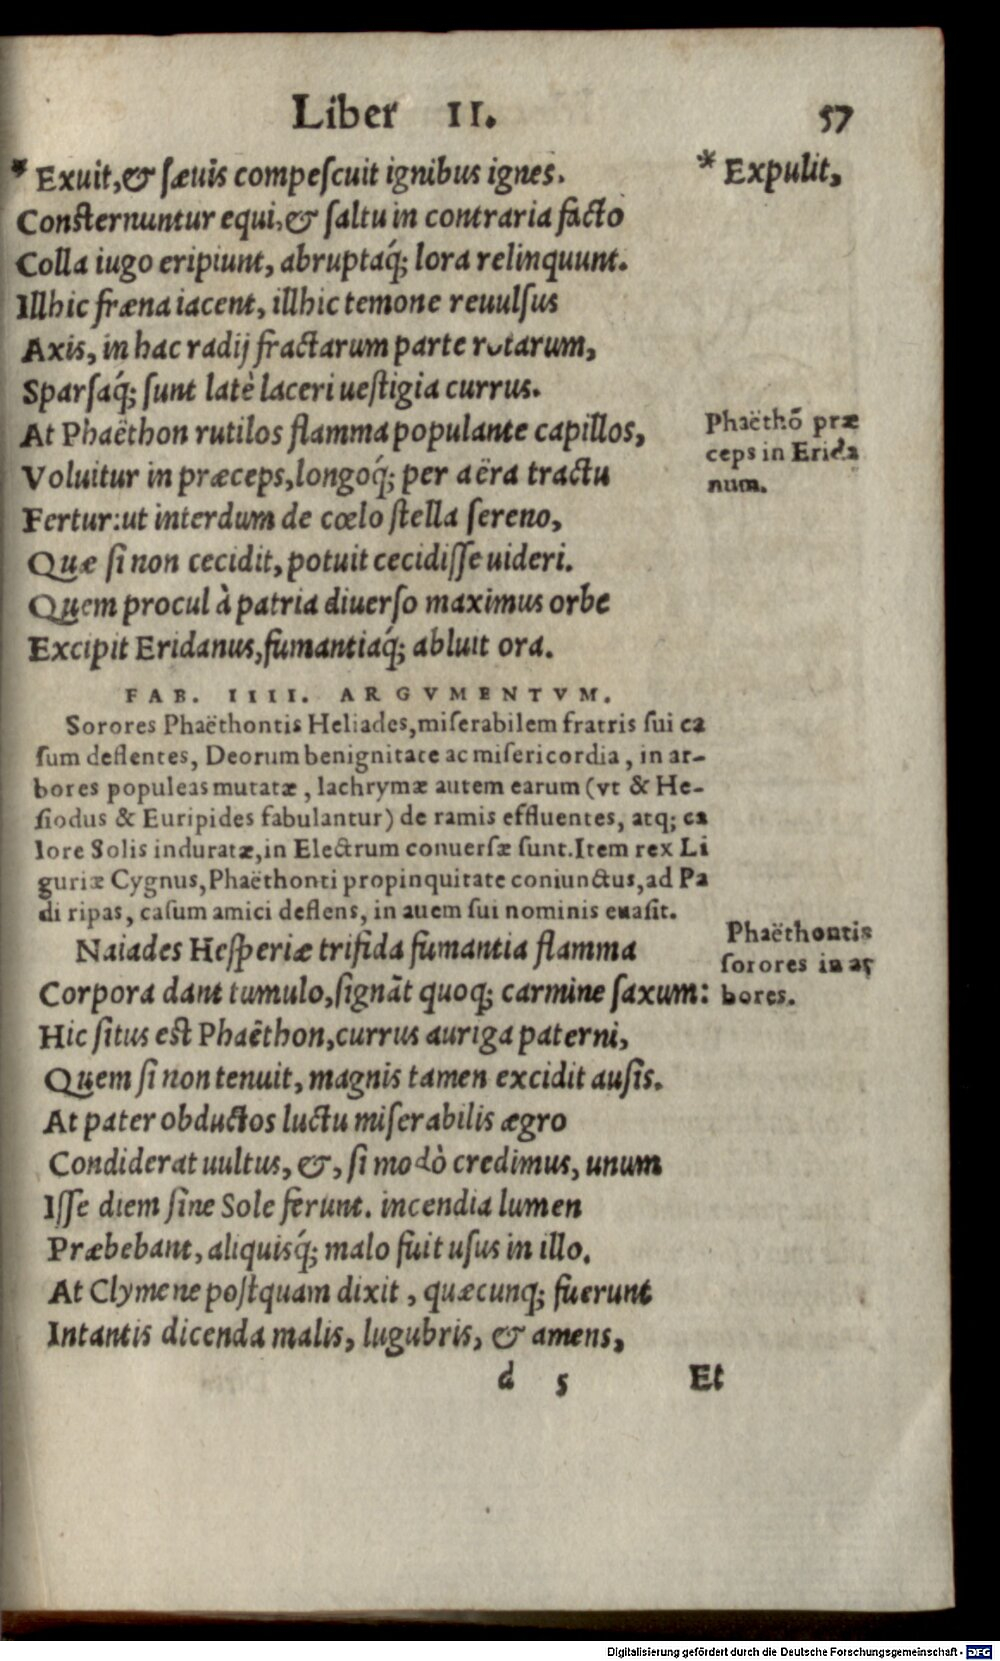 Liber II. 57
* Exuit, & sæuis compescuit ignibus ignes.
* Expulit,
Consternuntur equi, & saltu in contraria facto
Colla iugo eripiunt, abruptaq́; lora relinquunt.
Illhic fræna iacent, illhic temone reuulsus
Axis, in hac radij fractarum parte rotarum,
Sparsaq́; sunt latè laceri uestigia currus.
At Phaëthon rutilos flamma populante capillos,
Voluitur in præceps, longoq́; per aëra tractu
Fertur: ut interdum de cœlo stella sereno,
Quæ si non cecidit, potuit cecidisse uideri.
Quem procul à patria diuerso maximus orbe
Excipit Eridanus, fumantiaq́; abluit ora.
Phaëthõ præ
ceps in Erida
num.
FAB. IIII. ARGVMENTVM.
Sorores Phaëthontis Heliades, miserabilem fratris sui ca
sum deflentes, Deorum benignitate ac misericordia, in ar-
bores populeas mutatæ, lachrymæ autem earum (vt & He-
siodus & Euripides fabulantur) de ramis effluentes, atq; ca
lore Solis induratæ, in Electrum conuersæ sunt. Item rex Li
guriæ Cygnus, Phaëthonti propinquitate coniunctus, ad Pa
di ripas, casum amici deflens, in auem sui nominis euasit.
Naiades Hesperiæ trifida fumantia flamma
Corpora dant tumulo, signãt quoq; carmine saxum:
Hic situs est Phaëthon, currus auriga paterni,
Quem si non tenuit, magnis tamen excidit ausis.
At pater obductos luctu miserabilis ægro
Condiderat uultus, &, si modò credimus, unum
Isse diem sine Sole ferunt. incendia lumen
Præbebant, aliquisq́; malo fuit usus in illo.
At Clymene postquam dixit, quæcunq; fuerunt
Intantis dicenda malis, lugubris, & amens,
Phaëthontis
sorores in ar
bores.
d 5 Et
Digitalisierung gefördert durch die Deutsche Forschungsgemeinschaft - DFG